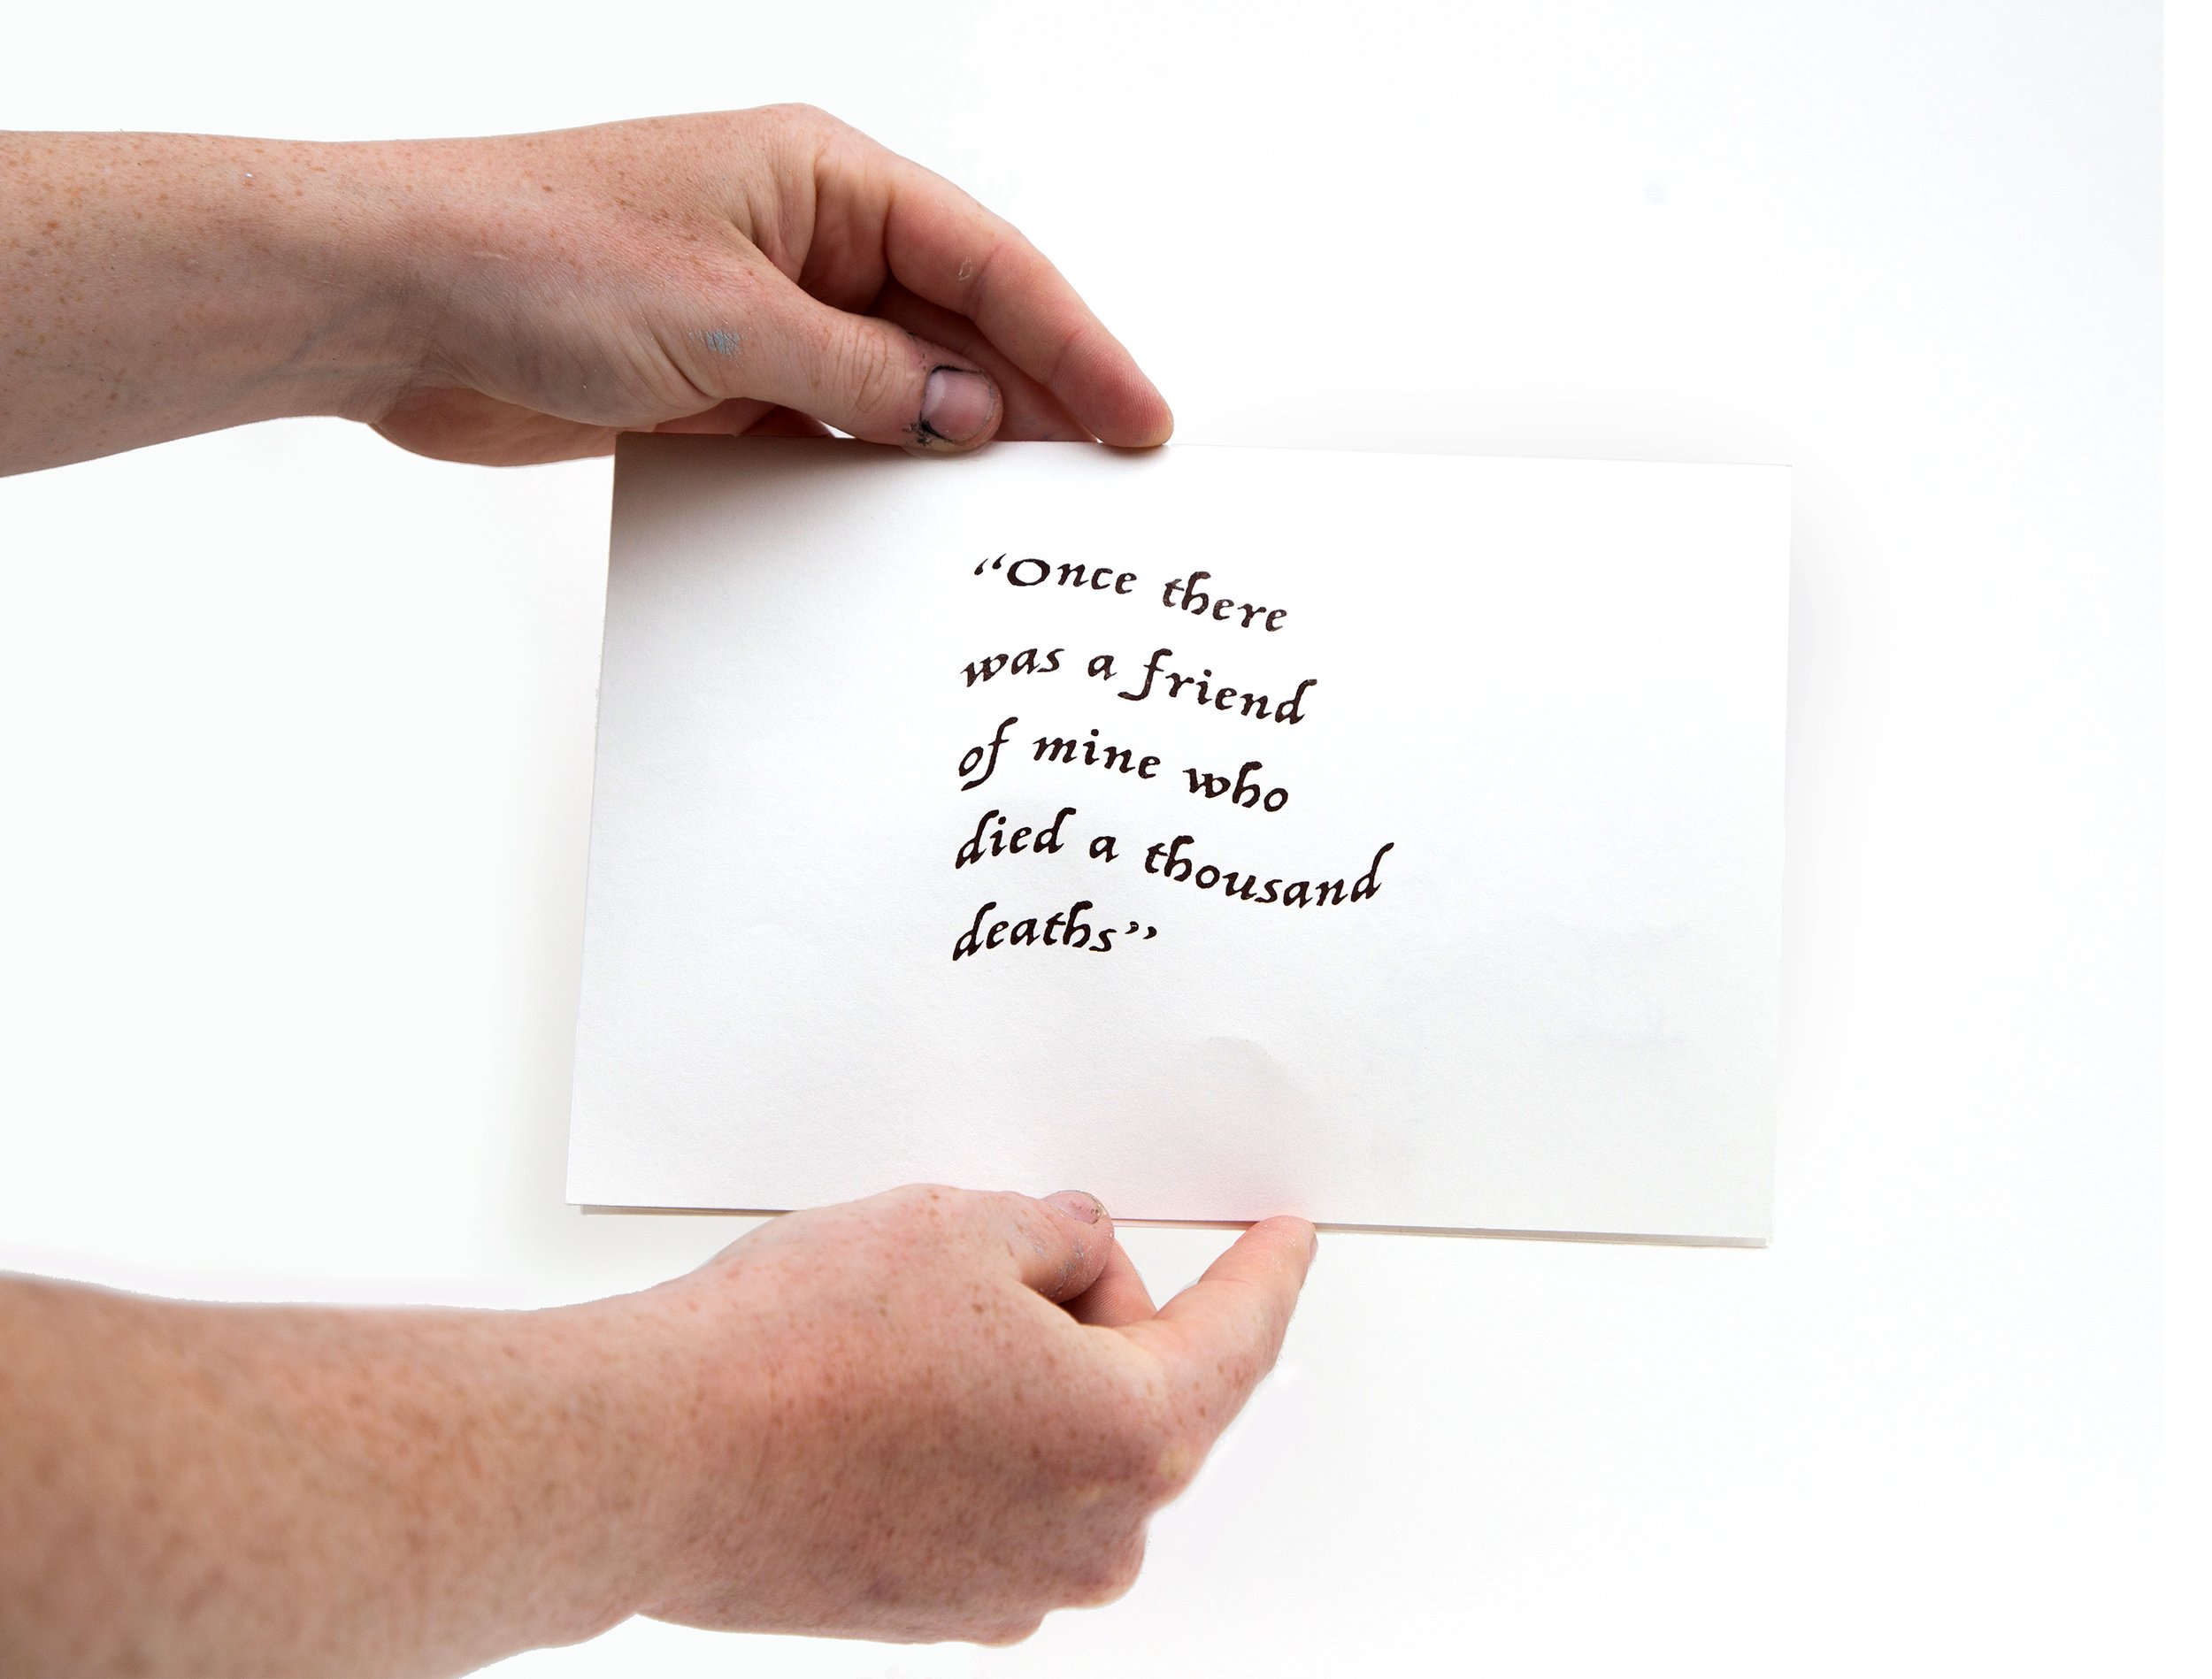 “Once there
was a friend
of mine who
died a thousand
deaths”